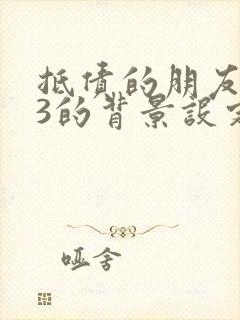 抵债的朋友
3的背景设定
哑舍